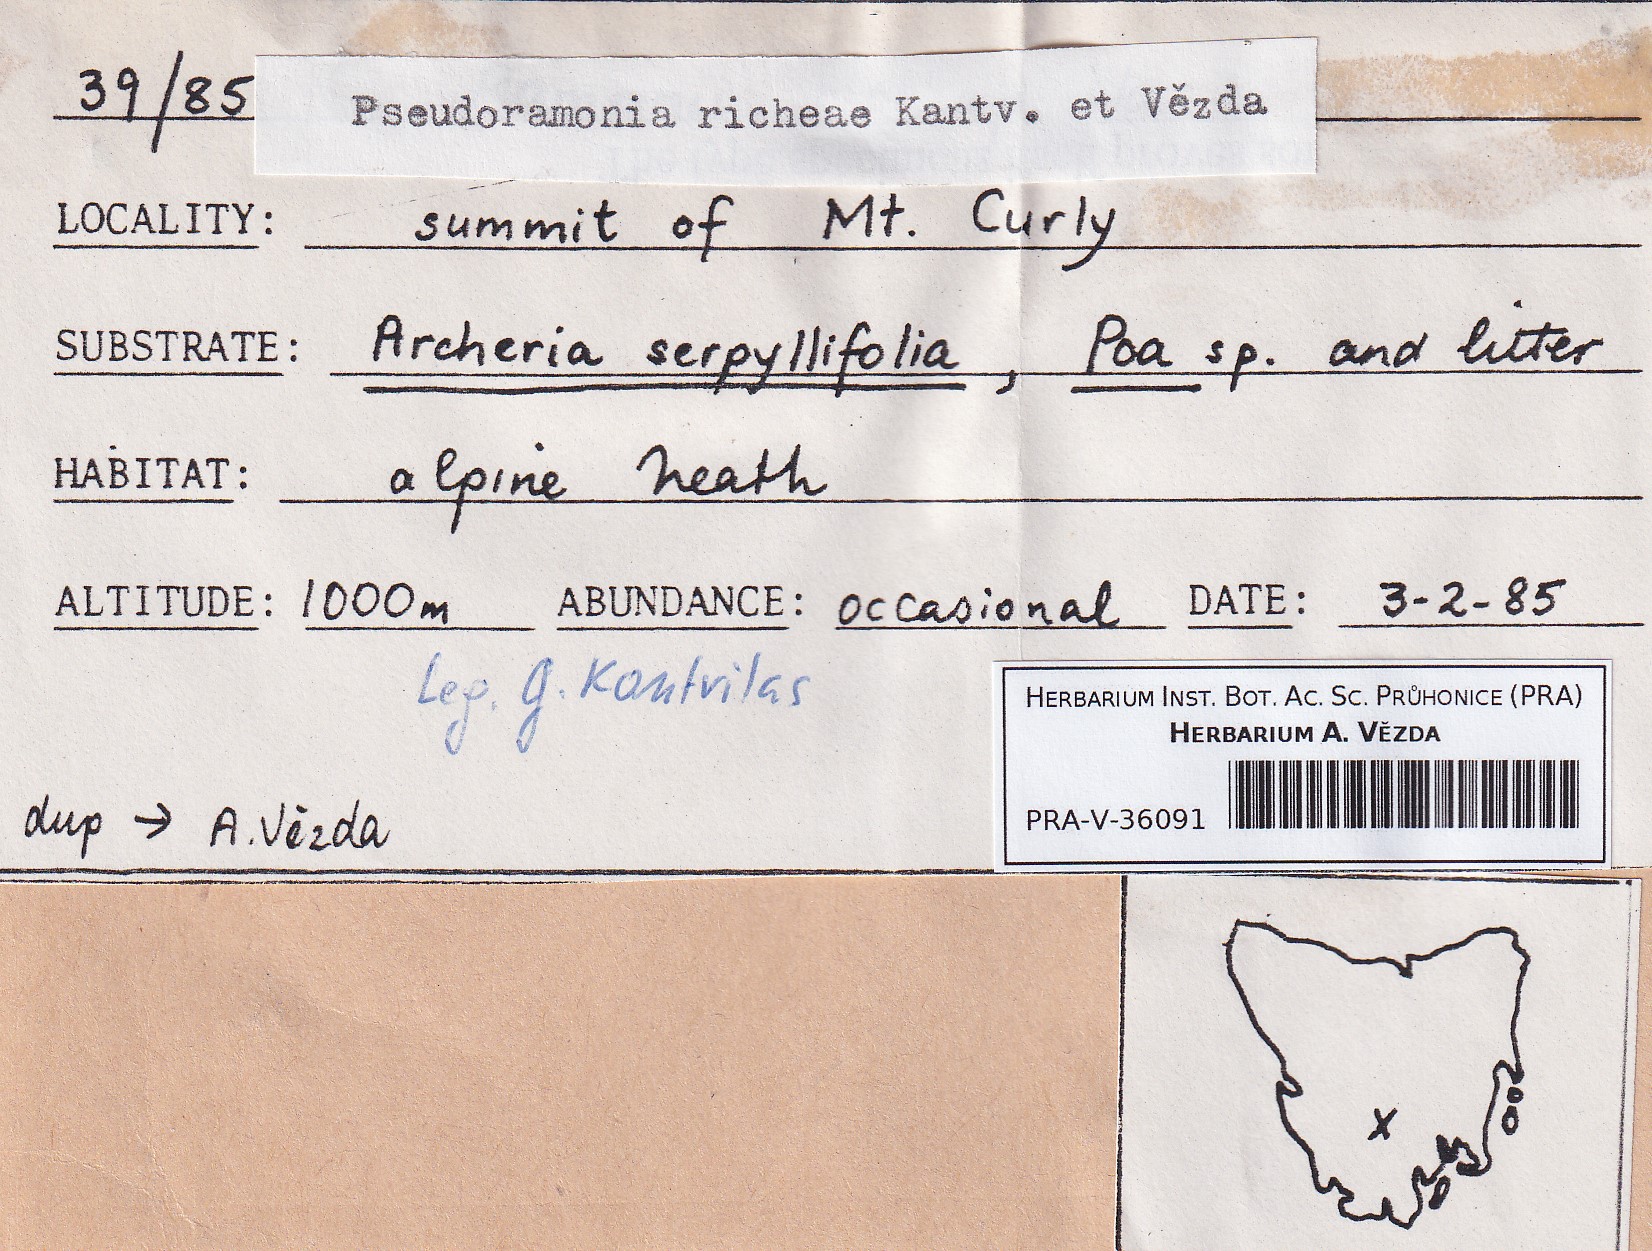 39/85 Pseudoramonia richeae Kantv. et Vězda
LOCALITY: summit of Mt. Curly
SUBSTRATE: Archeria serpyllifolia, Poa sp. and litter
HABITAT: alpine heath
ALTITUDE: 1000m ABUNDANCE: occasional DATE: 3-2-85
Leg. G. Kantvilas
HERBARIUM INST. BOT. AC. SC. PRŮHONICE (PRA)
HERBARIUM A. VĚZDA
PRA-V-36091
dup → A. Vězda
X